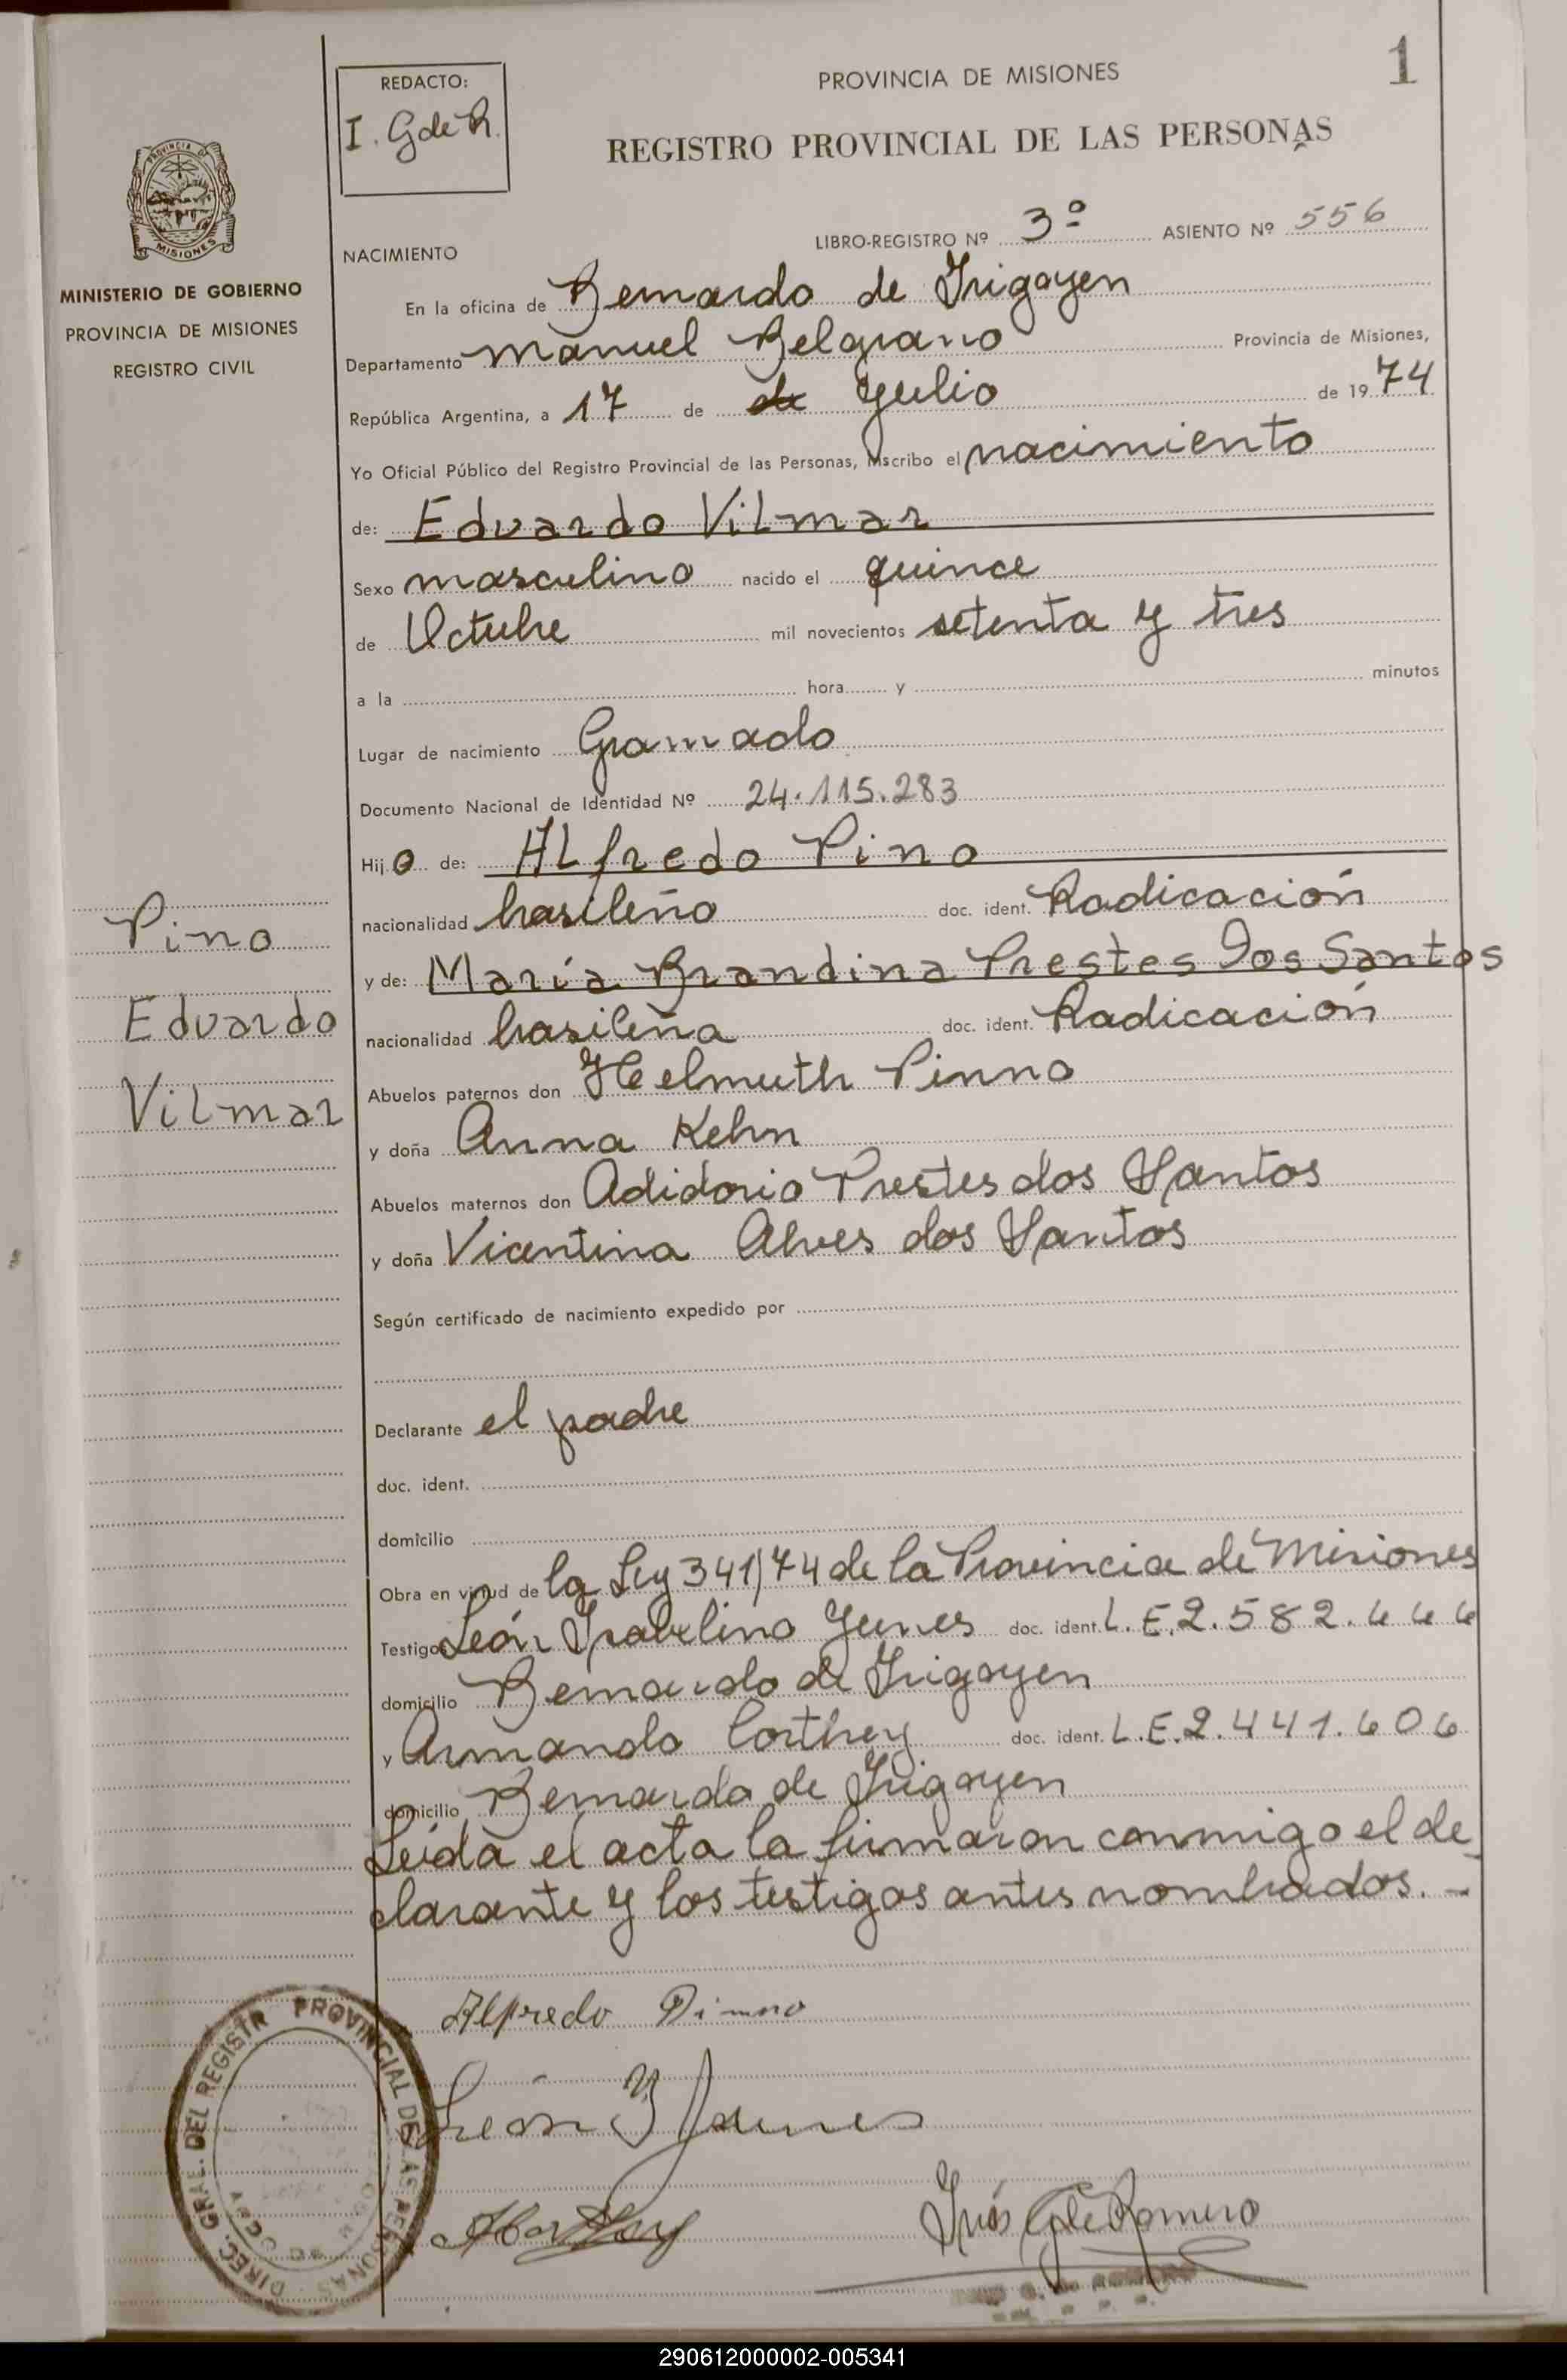 1
REDACTO:
I. G de R.
PROVINCIA DE MISIONES
REGISTRO PROVINCIAL DE LAS PERSONAS
PROVINCIA DE
MISIONES
MINISTERIO DE GOBIERNO
PROVINCIA DE MISIONES
REGISTRO CIVIL
LIBRO-REGISTRO Nº 3º ASIENTO Nº 556
NACIMIENTO
En la oficina de Bernardo de Irigoyen
Departamento Manuel Belgrano Provincia de Misiones,
República Argentina, a 17 de de Julio de 1974
Yo Oficial Público del Registro Provincial de las Personas, inscribo el nacimiento
de: Eduardo Vilmar
Sexo masculino nacido el quince
de Octubre mil novecientos setenta y tres
a la hora y minutos
Lugar de nacimiento Gramado
Documento Nacional de Identidad Nº 24.115.283
Hijo de: ALfredo Pino
nacionalidad brasileño doc. ident. Radicación
y de: María Brandina Prestes Dos Santos
nacionalidad brasileña doc. ident. Radicación
Abuelos paternos don Helmuth Pinno
y doña Anna Kehn
Abuelos maternos don Adidorio Prestes dos Santos
y doña Vicentina Alves dos Santos
Según certificado de nacimiento expedido por
Declarante el padre
doc. ident.
domicilio
Obra en virtud de la Ley 341/74 de la Provincia de Misiones
Testigos León Isabelino Yunes doc. ident. L.E.2.582.666
domicilio Bernardo de Irigoyen
y Armando Corthey doc. ident. L.E.2.441.606
domicilio Bernardo de Irigoyen
Leída el acta la firmaron conmigo el de
clarante y los testigos antes nombrados. -
Pino
Eduardo
Vilmar
Alfredo Pinno
León Y Yunes
Inés G de Romero
DIREC. GRAL. DEL REGISTR PROVINCIAL DE LAS PERSONAS
290612000002-005341